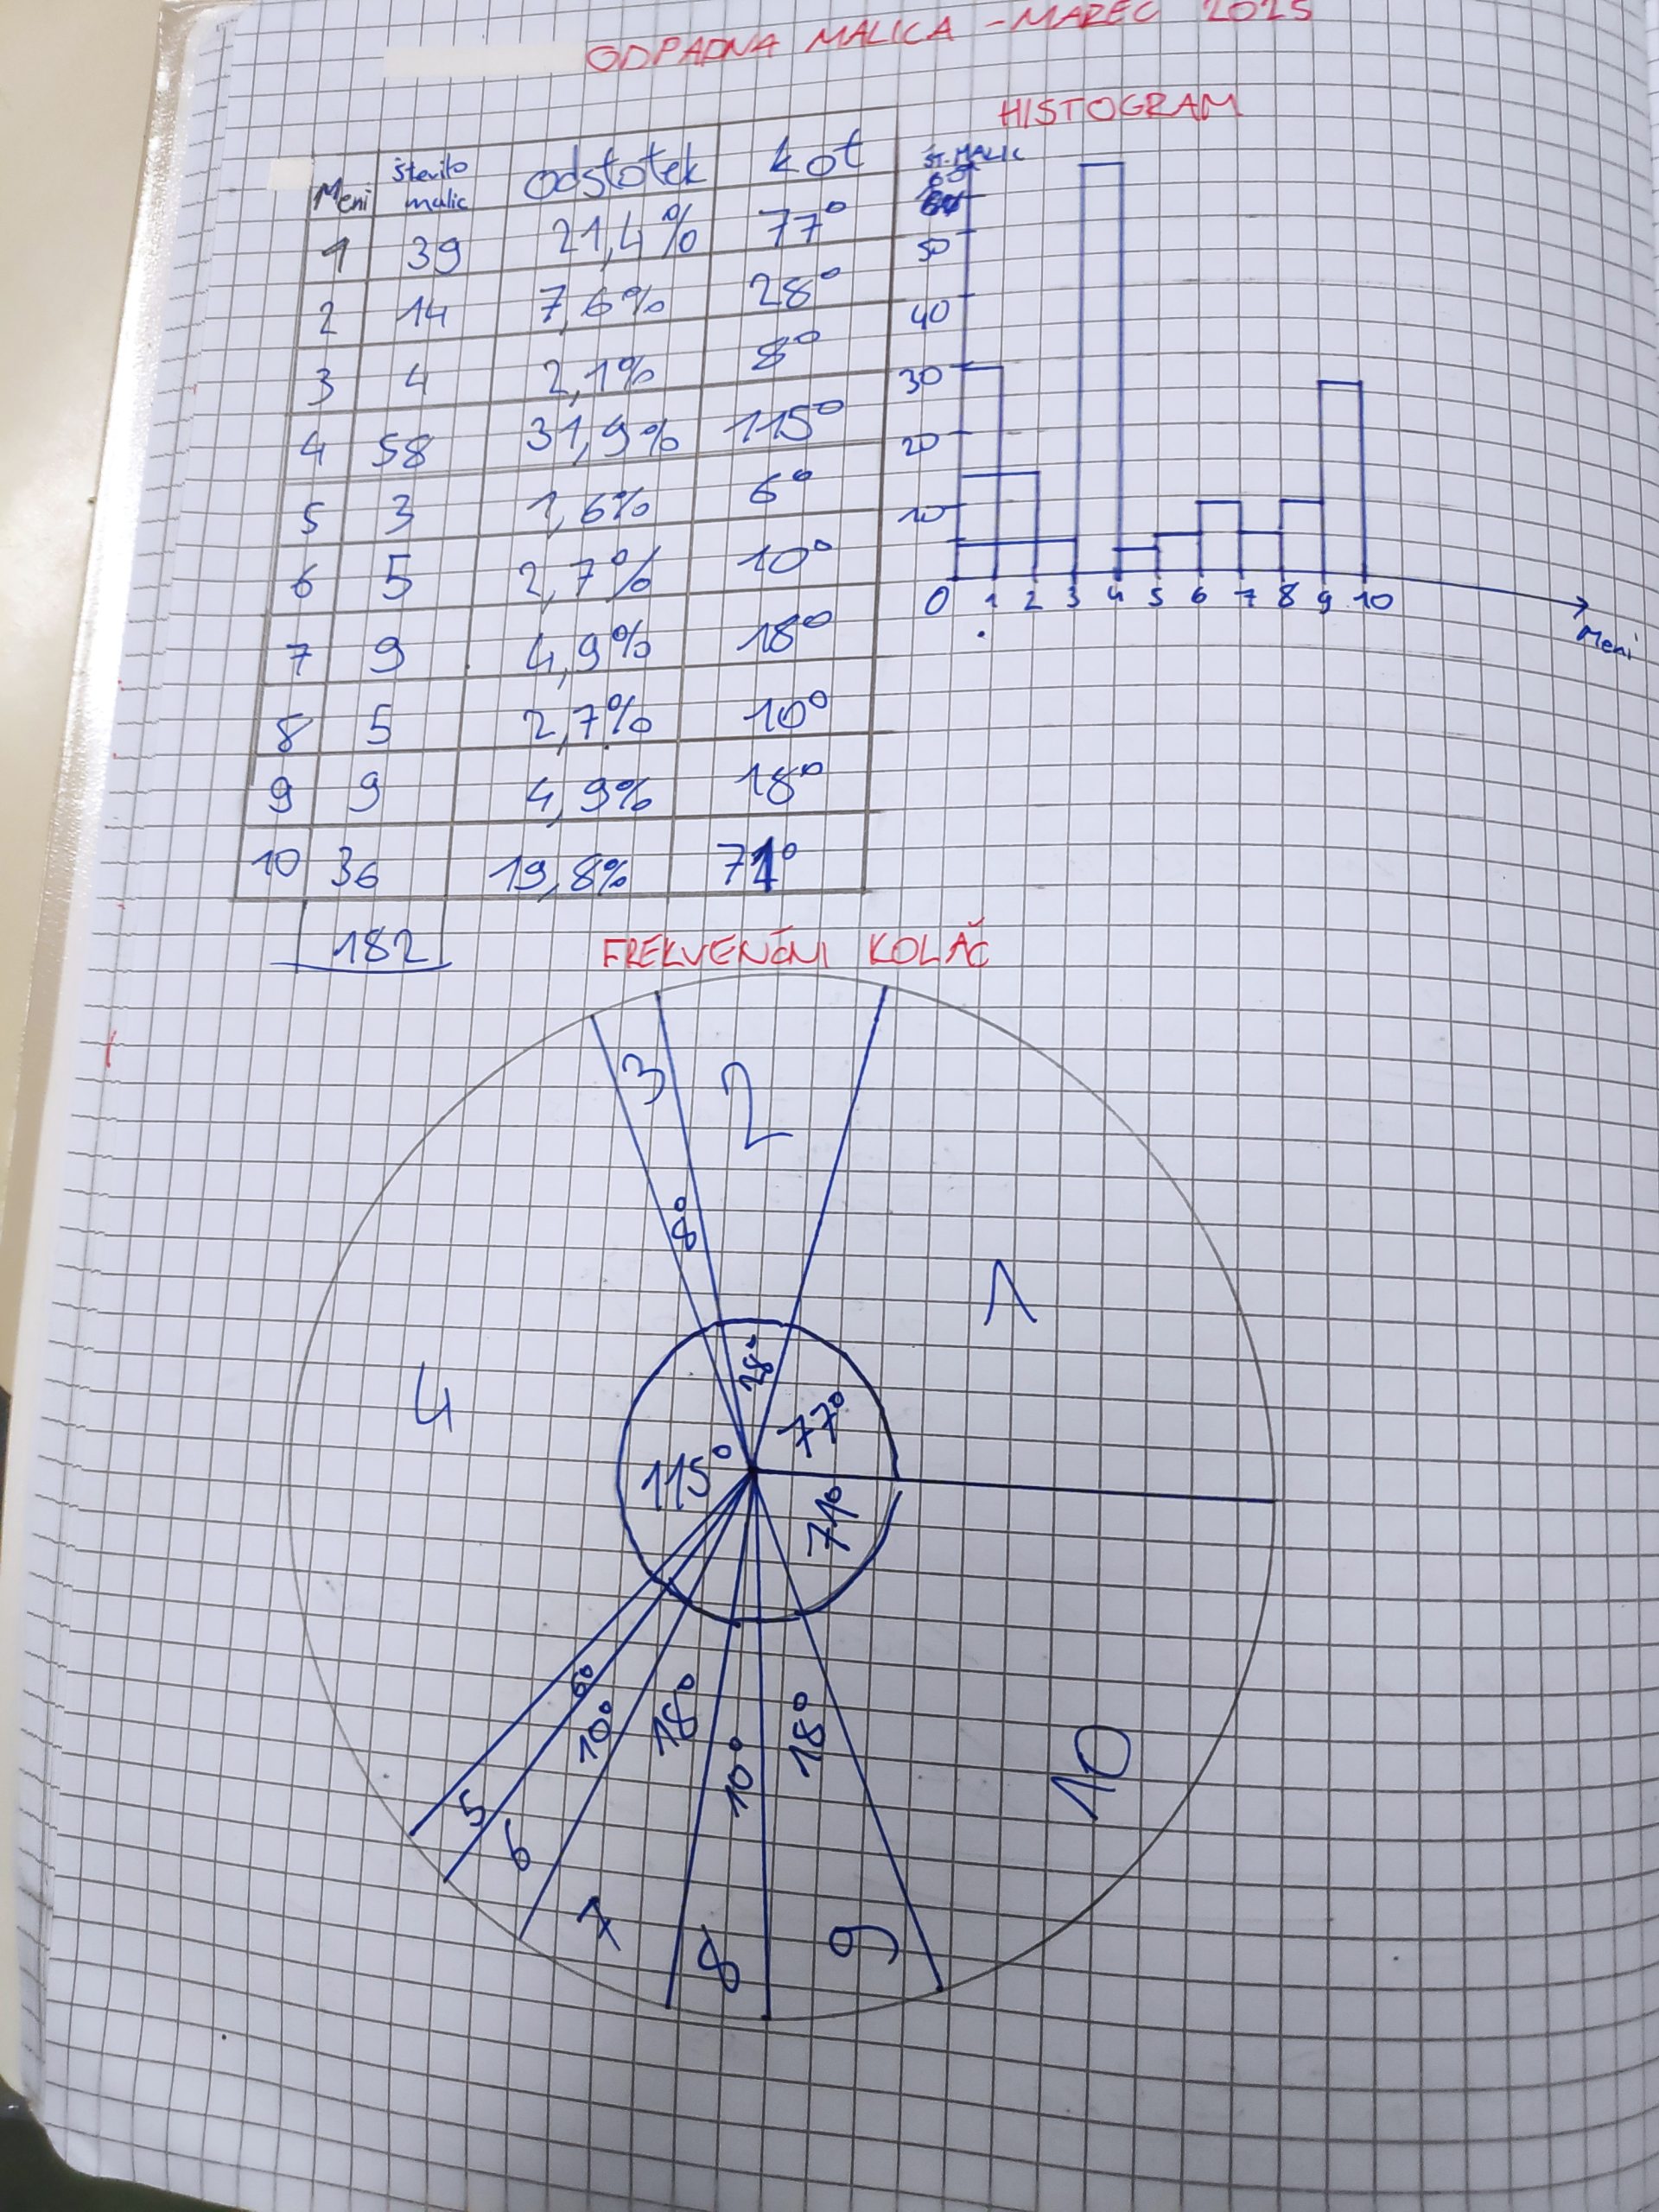 ODPADNA MALICA - MAREC 2025
Meni število malic odstotek kot
1 39 21,4% 77°
2 14 7,6% 28°
3 4 2,1% 8°
4 58 31,9% 115°
5 3 1,6% 6°
6 5 2,7% 10°
7 9 4,9% 18°
8 5 2,7% 10°
9 9 4,9% 18°
10 36 19,8% 71°
182
HISTOGRAM
ŠT. MALIC
50
40
30
20
10
0 1 2 3 4 5 6 7 8 9 10
Meni
FREKVENČNI KOLAČ
3 2
8°
1
28°
4
77°
115°
71°
6°
10° 18° 10° 18°
10
5
6
7 8 9